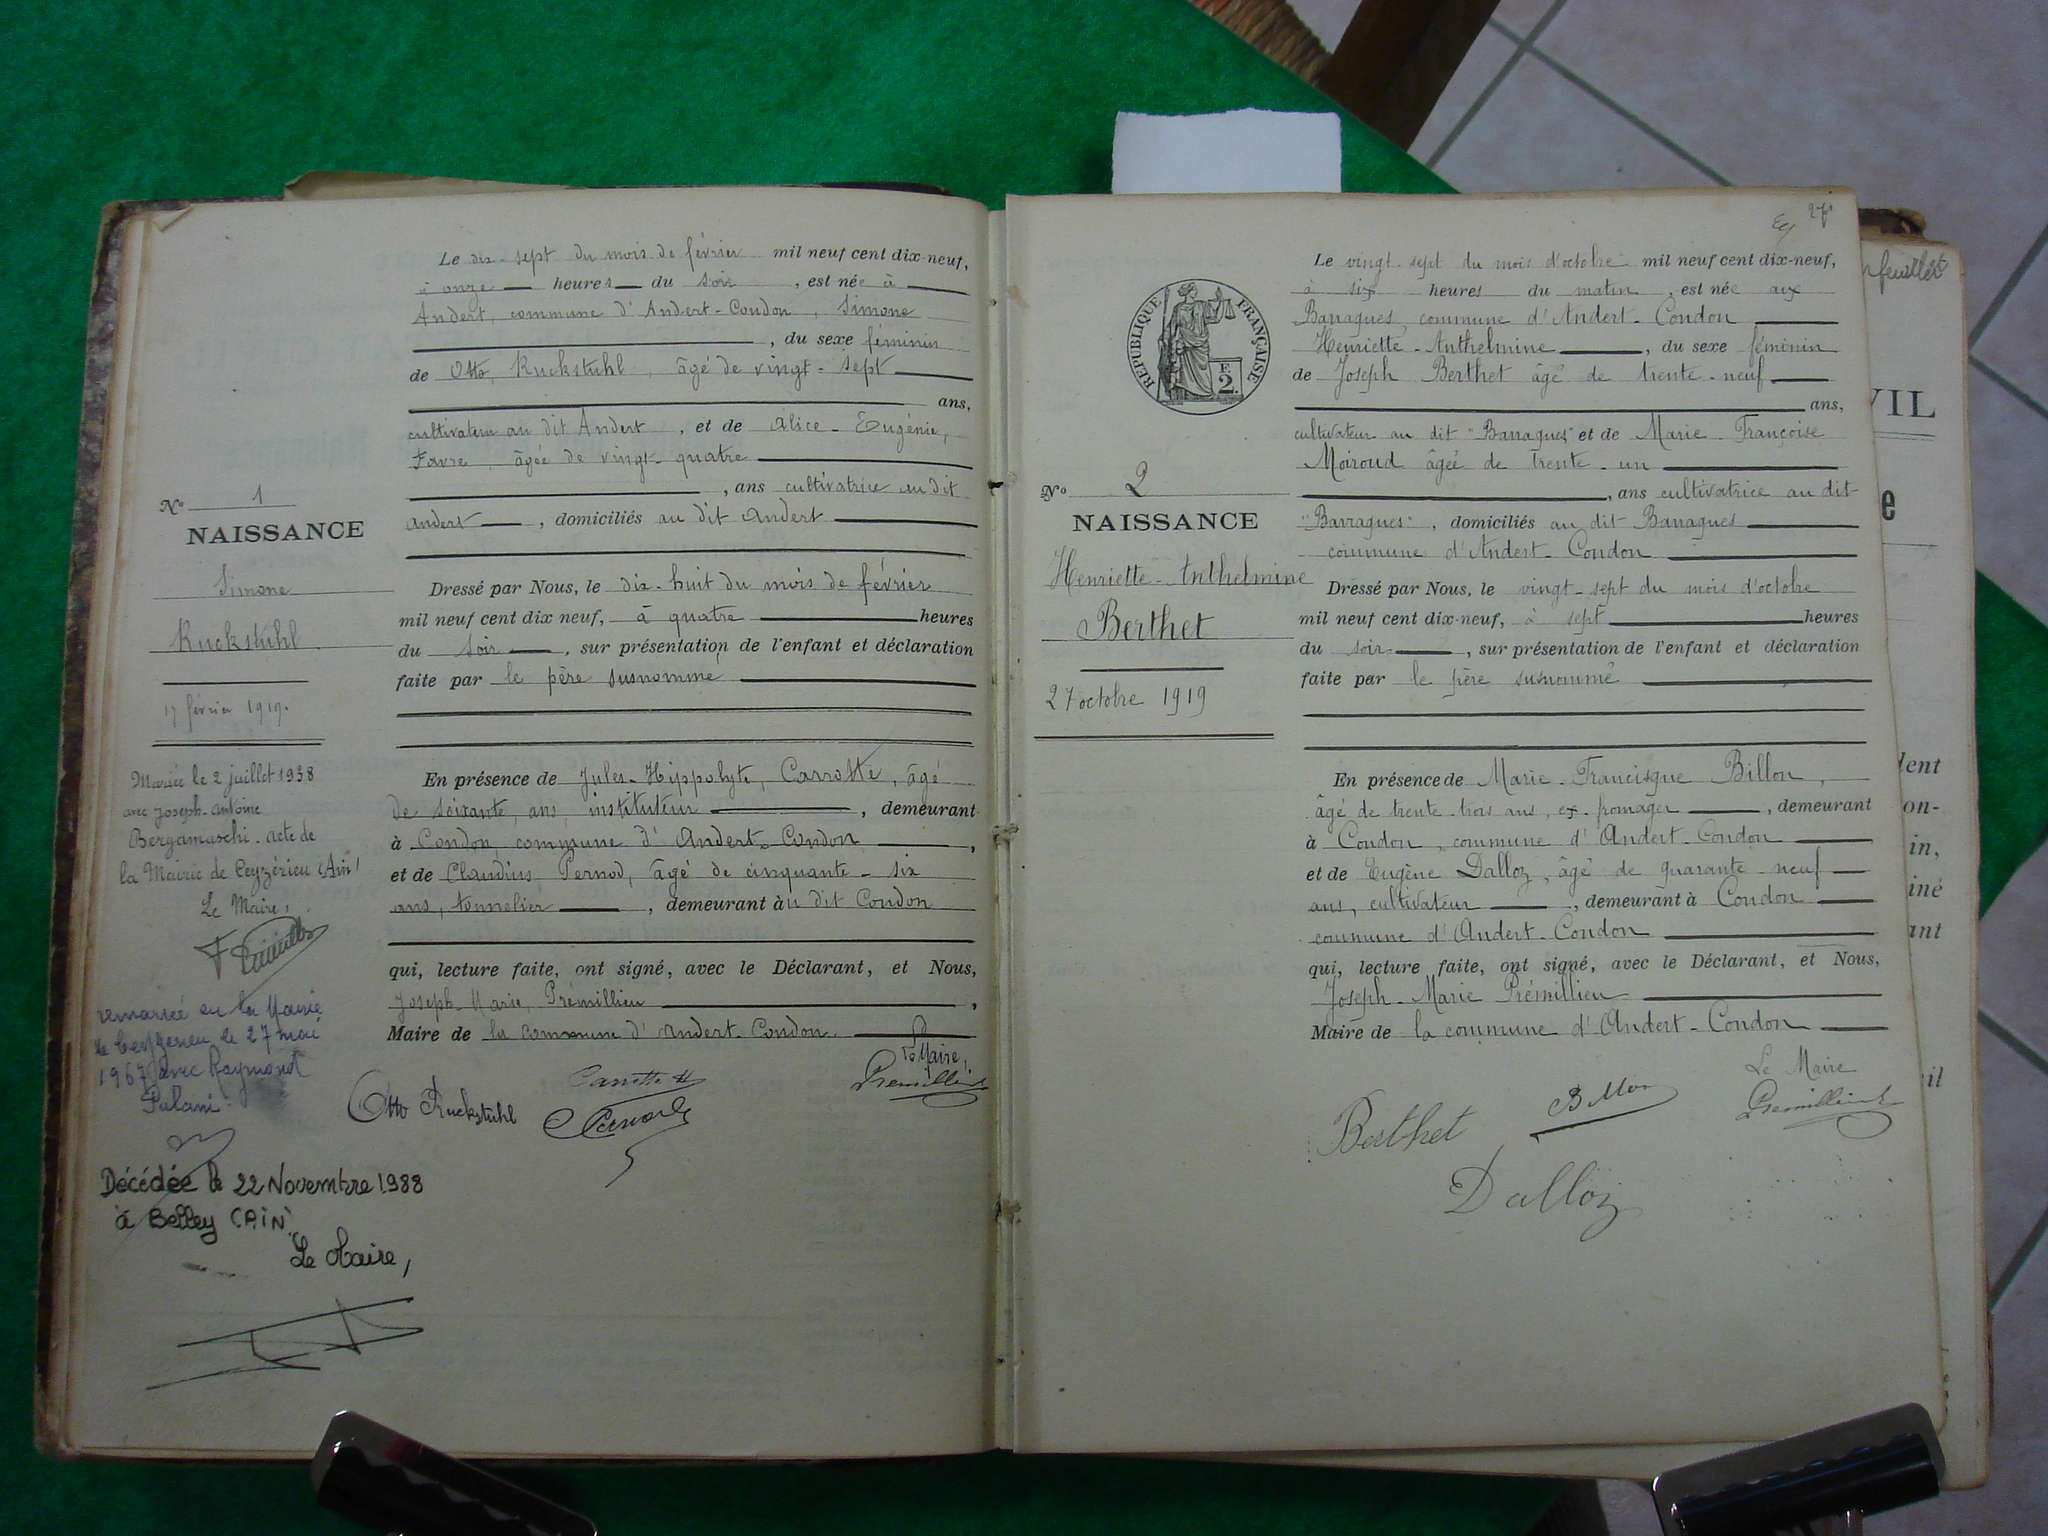 Le dix-sept du mois de février mil neuf cent dix-neuf,
à onze heures du soir, est née à
Andert, commune d'Andert-Condon, Simone
, du sexe féminin
de Otto, Ruckstuhl, âgé de vingt-sept
ans,
cultivateur au dit Andert, et de Alice-Eugénie,
Favre, âgée de vingt-quatre
, ans cultivatrice au dit
Andert, domiciliés au dit Andert
Nº 1
NAISSANCE
Simone
Ruckstuhl
17 février 1919.
Dressé par Nous, le dix-huit du mois de février
mil neuf cent dix neuf, à quatre heures
du soir, sur présentation de l'enfant et déclaration
faite par le père susnommé
En présence de Jules-Hippolyte, Carrotte, âgé
de soixante, ans, instituteur, demeurant
à Condon, commune d'Andert-Condon,
et de Claudius Pernod, âgé de cinquante-six
ans, tonnelier, demeurant au dit Condon
qui, lecture faite, ont signé, avec le Déclarant, et Nous,
Joseph-Marie, Prémillieu,
Maire de la commune d'Andert-Condon.
Le Maire,
Otto Ruckstuhl
Prémillieu
Mariée le 2 juillet 1938
avec Joseph-Antoine
Bergamaschi. acte de
la Mairie de Ceyzérieu (Ain)
Le Maire,
remariée en la Mairie
de Ceyzérieu le 27 mai
1967 avec Raymond
Décédée le 22 Novembre 1988
à Belley (AIN)
Le Maire,
27
Le vingt-sept du mois d'octobre mil neuf cent dix-neuf,
à six heures du matin, est née aux
Barraques, commune d'Andert-Condon
Henriette-Anthelmine, du sexe féminin
de Joseph Berthet âgé de trente-neuf
ans,
cultivateur au dit "Barraques" et de Marie-Françoise
Moiroud âgée de trente-un
, ans cultivatrice au dit
"Barraques", domiciliés au dit Barraques
commune d'Andert-Condon
RÉPUBLIQUE FRANÇAISE
E
2
Nº 2
NAISSANCE
Henriette-Anthelmine
Berthet
27 octobre 1919
Dressé par Nous, le vingt-sept du mois d'octobre
mil neuf cent dix-neuf, à sept heures
du soir, sur présentation de l'enfant et déclaration
faite par le père susnommé
En présence de Marie-Francisque Billon,
âgé de trente-trois ans, ex-fromager, demeurant
à Condon, commune d'Andert-Condon
et de Eugène Dalloz, âgé de quarante-neuf
ans, cultivateur, demeurant à Condon
commune d'Andert-Condon
qui, lecture faite, ont signé, avec le Déclarant, et Nous,
Joseph-Marie Prémillieu
Maire de la commune d'Andert-Condon
Le Maire
Berthet
Billon
Prémillieu
Dalloz
feuillet
VIL
e
dent
on-
in,
iné
ant
il